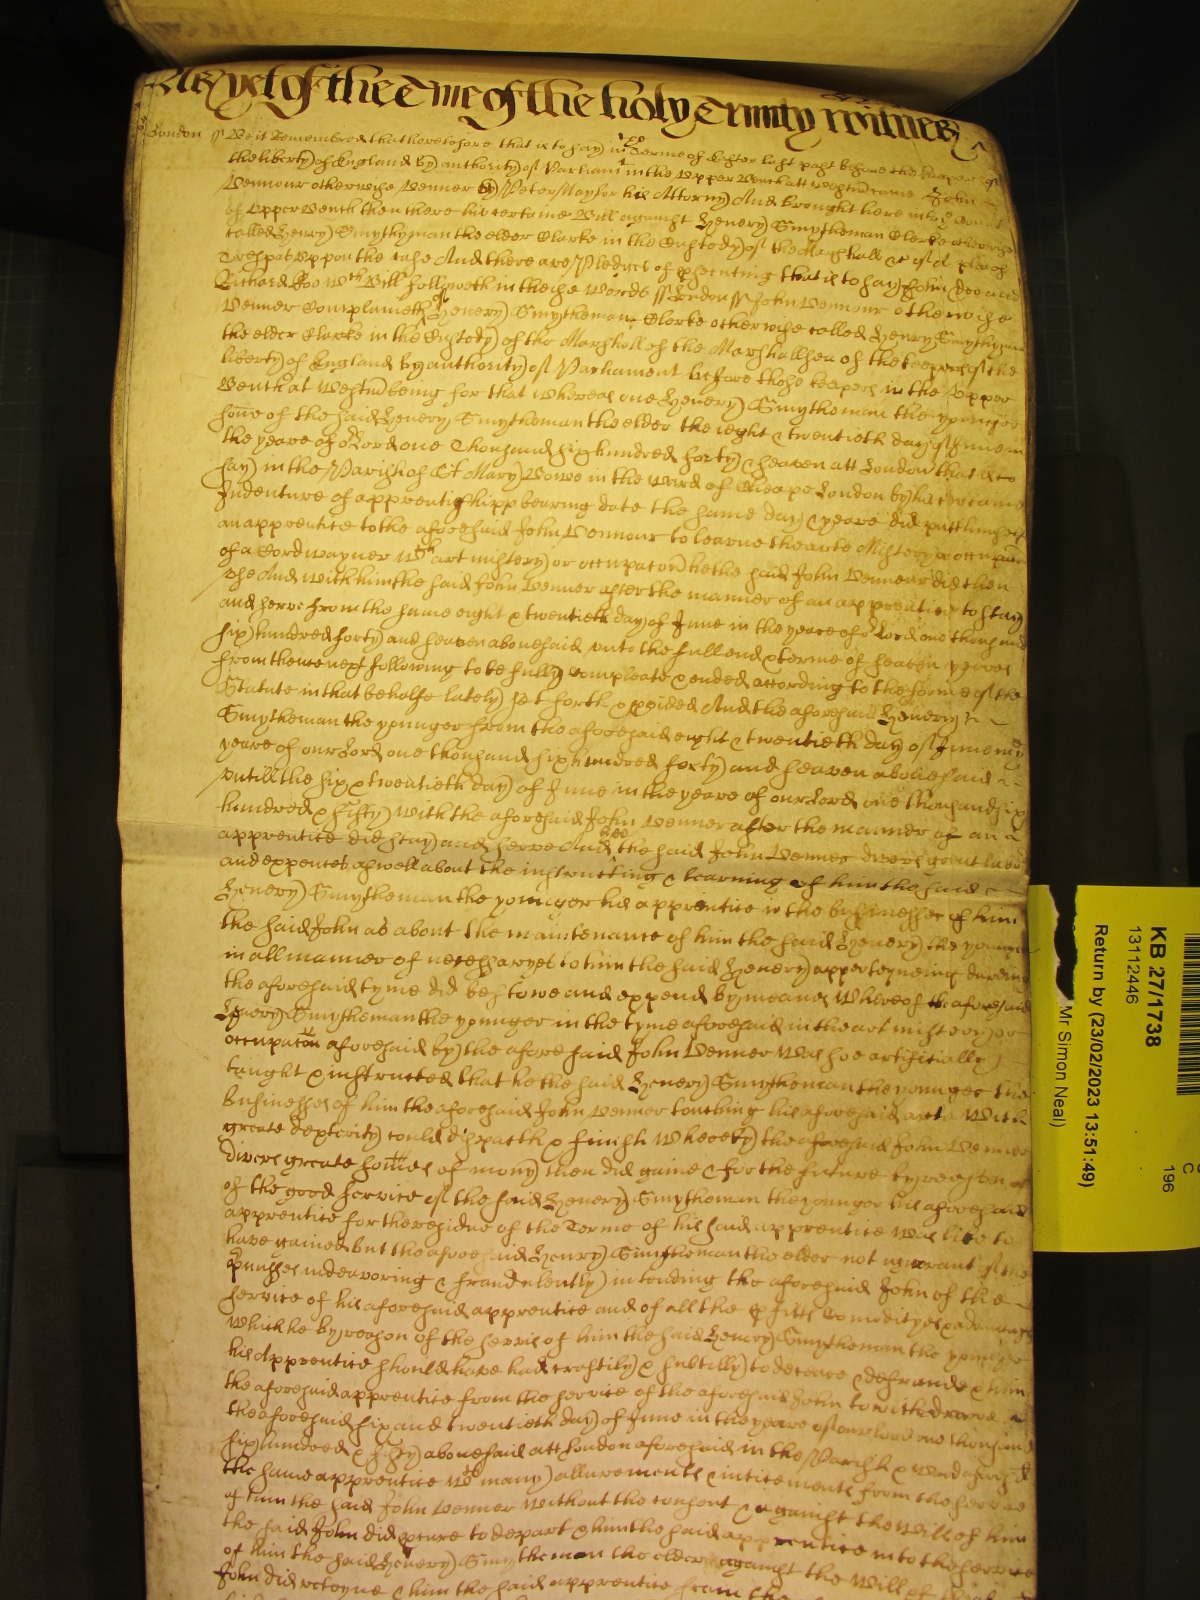 As yet of the Tme of the holy Trinity witnes
London ss Be it Remembred that heretofore that is to say in Terme of Easter last past before the keepers of
the liberty of England by authority of Parliamt in the Upper Bench att Westmr came John
Vennour otherwise Venner by Peter Naylor his Attorny And brought here into the Court
of Upper Bench then there his certaine Bill against Henery Smytheman Clarke otherwise
called Henry Smythyman the elder Clarke in the Custody of the Marshall &c of a plea of
Trespas uppon the case And there are Pledges of prosecuting that is to say John Doe and
Richard Roo wch Bill followeth in theise words ss London ss John Vennour otherwise
Venner Complaineth of Henery Smytheman Clarke otherwise called Henry Smythyman
the elder Clarke in the Custody of the Marshall of the Marshallsea of the keepers of the
liberty of England by authority of Parliament before those keapers in the Upper
Bench at Westmr being for that whereas one Henery Smytheman the younger
sone of the said Henery Smytheman the elder the eight & twentieth day of June in
the yeare of or Lord one Thousand six hundred forty & seaven att London that is to
say in the Parish of St Mary Bowe in the Ward of Cheape London by his certaine
Indenture of apprentisshipp bearing date the same day & yeare did putt himself
an apprentice to the aforesaid John Vennour to learne the arte Mistery or occupacon
of a Cordwayner wch art mistery or occupacon he the said John Vennour did then
use And with him the said John Venner after the manner of an apprentice to stay
and serve from the same eight & twentieth day of June in the yeare of or Lord one thousand
six hundred forty and seaven abovesaid unto the full end & terme of seaven yeares
from thence next following to be fully compleate & ended according to the forme of the
Statute in that behalfe lately set forth & pvided And the aforesaid Henery
Smytheman the younger from the aforesaid eight & twentieth day of June in the
yeare of our Lord one thousand six hundred forty and seaven abovesaid
untill the six & twentieth day of June in the yeare of our Lord one thousand six
hundred & fifty with the aforesaid John Venner after the manner of an
apprentice did stay and serve And the said John Venner divers great labor
and expences aswell about the instructing & learning of him the said
Henery Smytheman the younger his apprentice in the businesses of him
the said John as about the maintenance of him the said Henery the younger
in all manner of necessaryes to him the said Henery apperteyneing dureing
the aforesaid tyme did bestowe and expend by meanes Whereof the aforesaid
Henery Smytheman the younger in the tyme aforesaid in the art mistery or
occupacon aforesaid by the afore said John Venner Was soe artificially
taught & instructed that he the said Henery Smytheman the younger the
businesses of him the aforesaid John Venner touching his aforesaid arte With
greate dexterity could dispatch & finish Whereby the aforesaid John Venner
divers greate somes of mony then did gaine & for the future by reason of
of the good service of the said Henery Smytheman the younger his aforesaid
apprentice for the residue of the Terme of his said apprentice Was like to
have gained but the aforesaid Henry Smytheman the elder not ignorant of the
pmisses indeavoring & fraudulently intending the aforesaid John of the
service of his aforesaid apprentice and of all the pfitts Comodityes & advantages
which he by reason of the servis of him the said Henery Smytheman the younger
his Apprentice should have had craftily & subtilly to deceave & defraude & him
the aforesaid apprentice from the service of the aforesaid John to withdrawe
the aforesaid six and twentieth day of June in the yeare of our lord one thousand
six hundred & fifty abovesaid att London aforesaid in the Parish & Ward aforesd
the same apprentice wth many allurements & inticements from the service
of him the said John Venner Without the consent & against the Will of him
the said John did pcure to depart & him the said apprentice into the service
of him the said Henery Smytheman the elder against the Will of
John did reteyne & him the said apprentice from the
KB 27/1738
13112446
Return by (23/02/2023 13:51:49)
Mr Simon Neal)
C
196